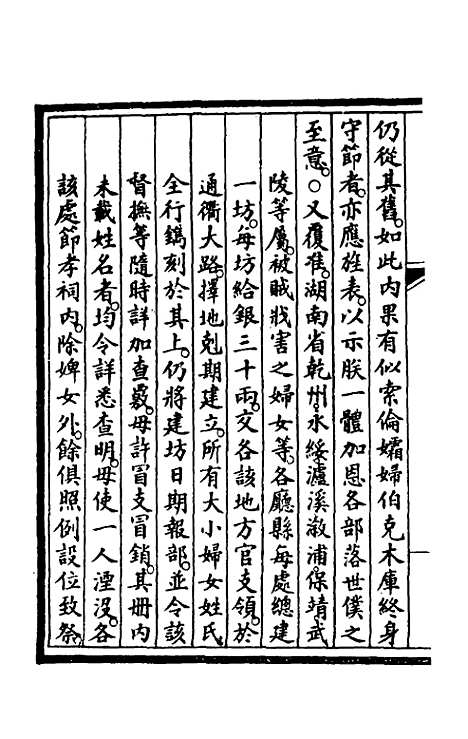 仍從其舊。如此內果有似索倫孀婦伯克木庫終身
守節者。亦應旌表。以示朕一體加恩各部落世僕之
至意。○又覆准。湖南省乾州。永綏瀘溪漵浦。保靖武
陵等屬。被賊戕害之婦女等。各廳縣每處總建
一坊。每坊給銀三十兩。交各該地方官支領。於
通衢大路。擇地剋期建立。所有大小婦女姓氏
全行鐫刻於其上。仍將建坊日期報部。並令該
督撫等隨時詳加查覈。毋許冒支冒銷。其冊內
未載姓名者。均令詳悉查明。毋使一人湮沒。各
該處節孝祠內。除婢女外。餘俱照例設位致祭。